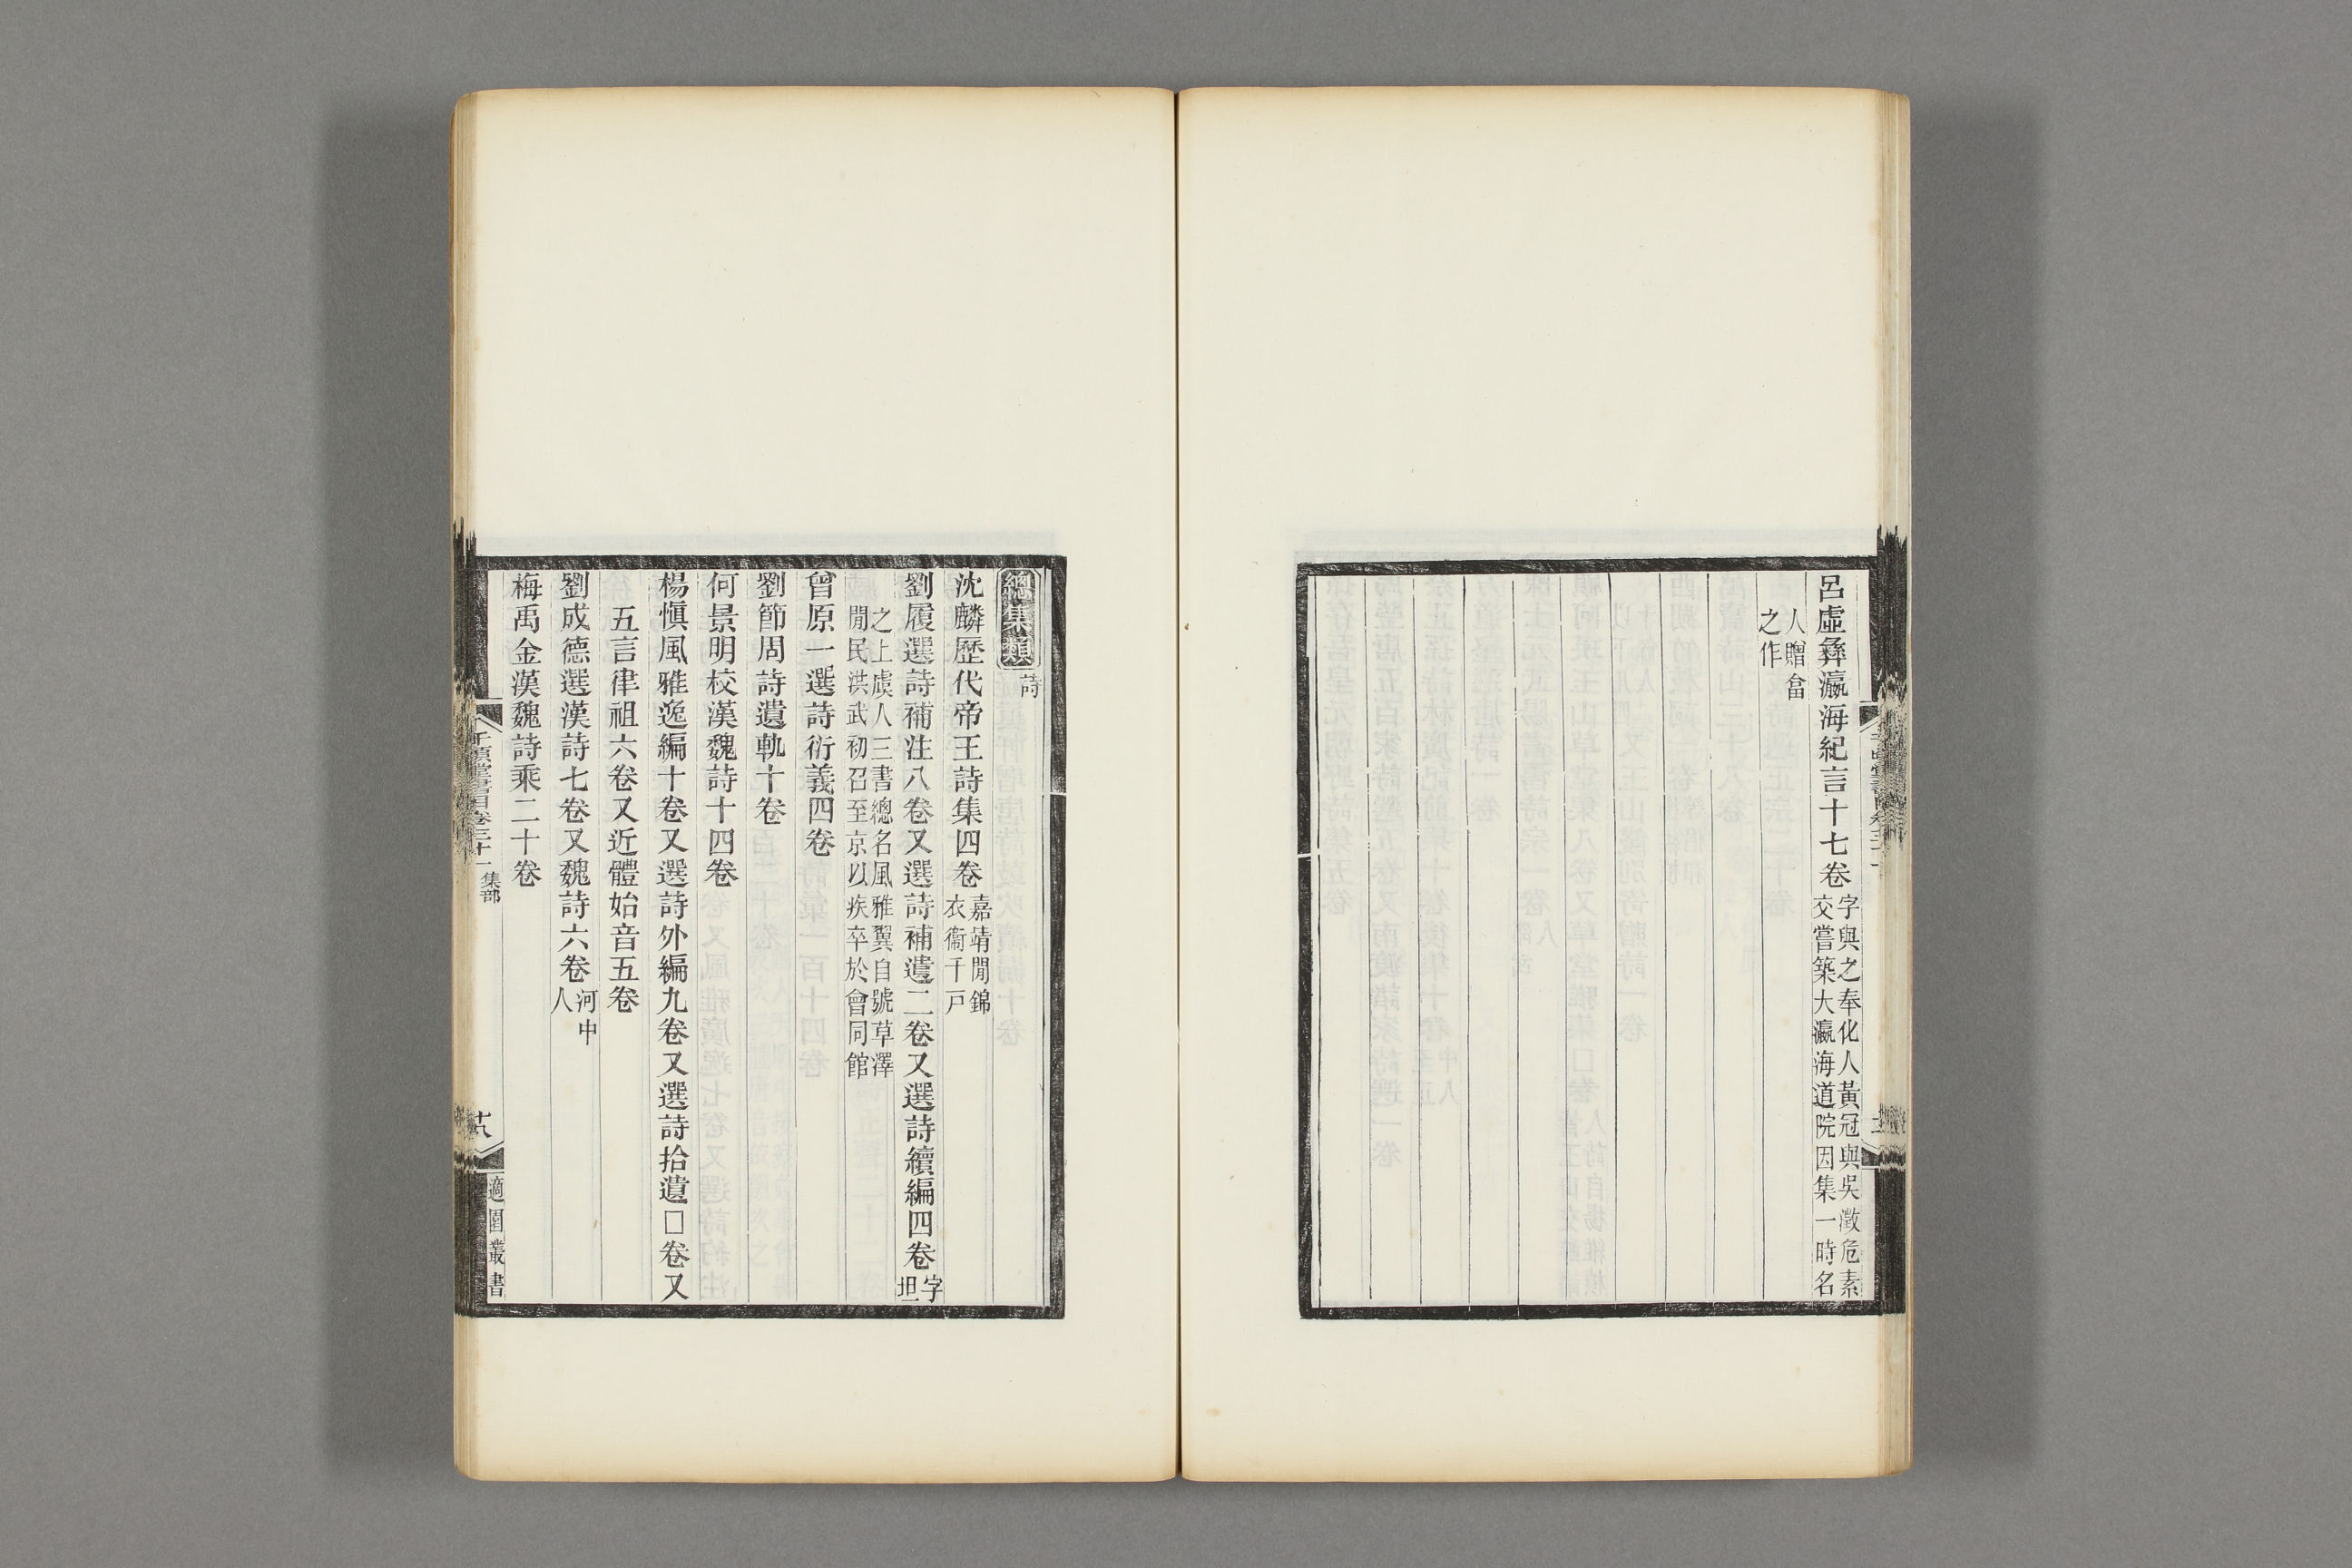 呂虛彝瀛海紀言十七卷字與之奉化人黃冠與吳澂危素
交嘗築大瀛海道院因集一時名
人贈畣
之作
總集類詩
沈麟歷代帝王詩集四卷嘉靖間錦
衣衞千戸
劉履選詩補注八卷又選詩補遺二卷又選詩續編四卷字
坦
之上虞人三書總名風雅翼自號草澤
閒民洪武初召至京以疾卒於會同館
曾原一選詩衍義四卷
劉節周詩遺軌十卷
何景明校漢魏詩十四卷
楊愼風雅逸編十卷又選詩外編九卷又選詩拾遺□卷又
五言律祖六卷又近體始音五卷
劉成德選漢詩七卷又魏詩六卷河中
人
梅禹金漢魏詩乘二十卷
千頃堂書目卷三十一 集部
適園叢書